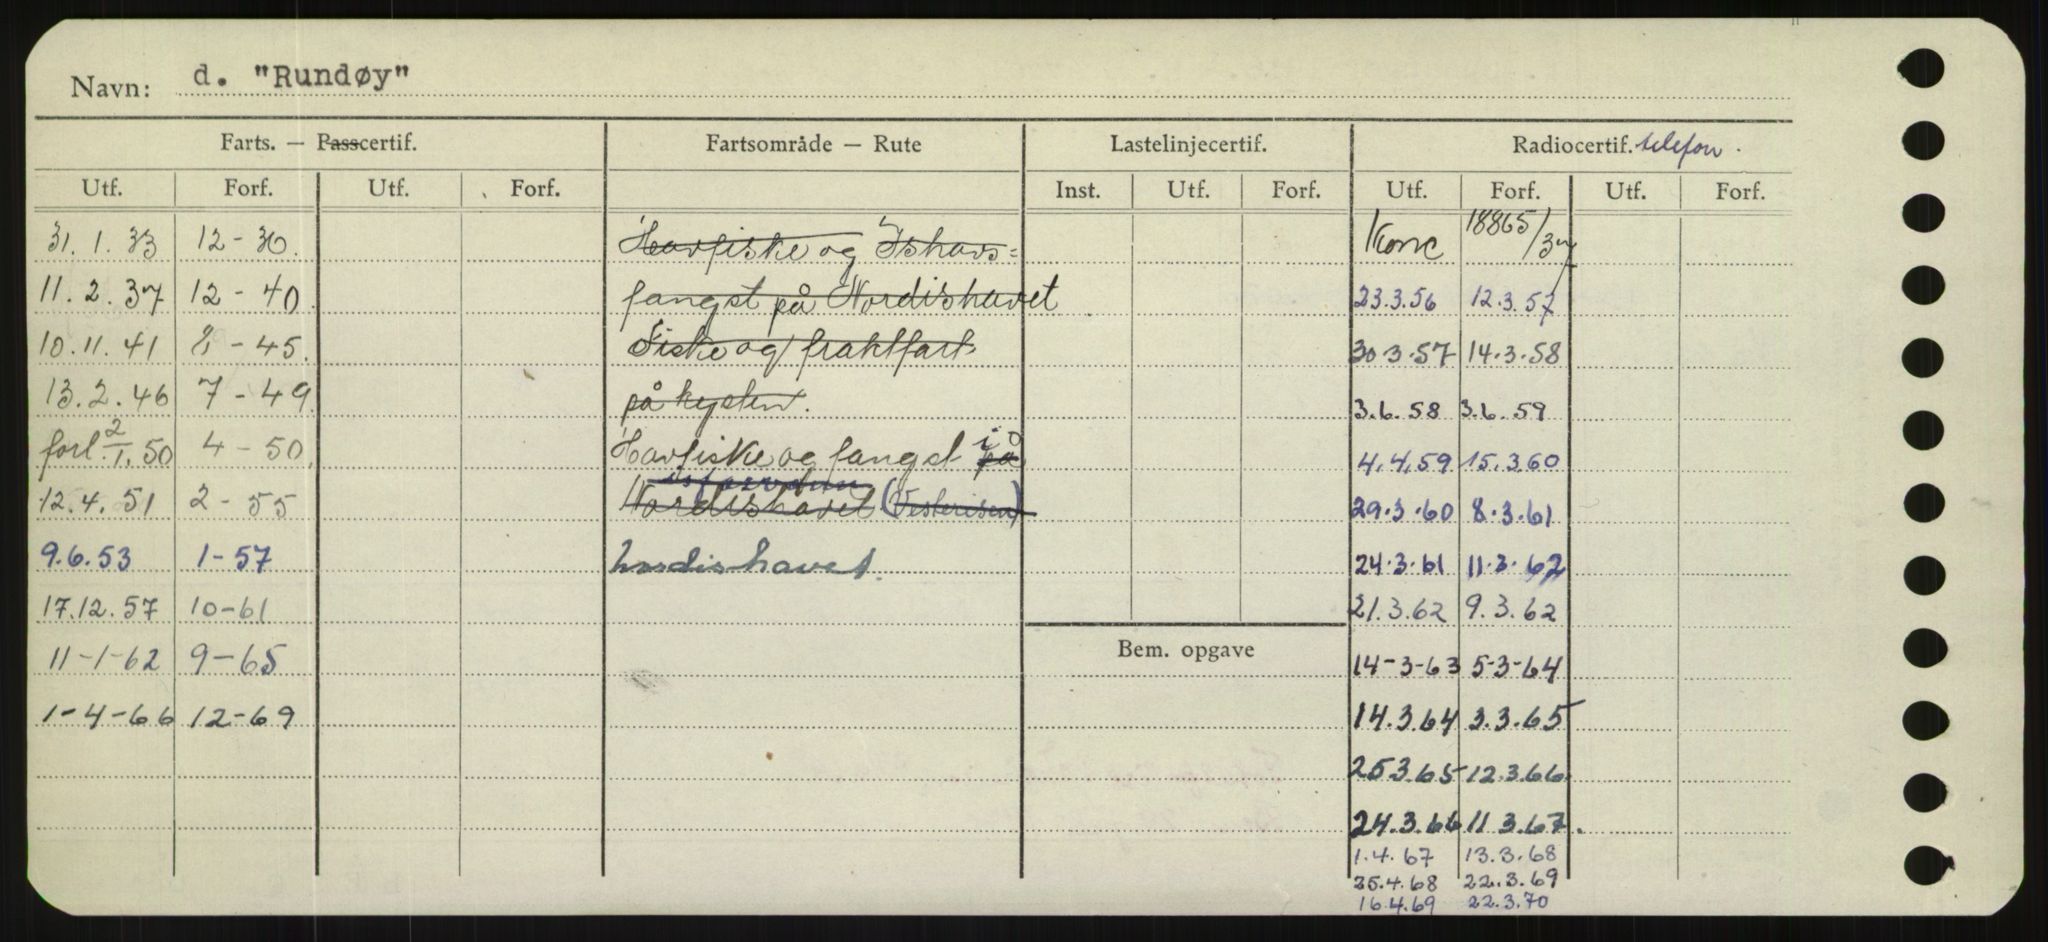 Navn: d. "Rundøy"
Farts. — Passcertif. Fartsområde — Rute Lastelinjecertif. Radiocertif. telefon.
Utf. Forf. Utf. Forf. Inst. Utf. Forf. Utf. Forf. Utf. Forf.
31. 1. 33 12 - 36. Havfiske og Ishavs= Konc 18865/37
11. 2. 37 12 - 40 fangst på Nordishavet 23.3.56 12.3.57
10. 11. 41 8 - 45. Fiske og fraktfart 30 3.57 14.3.58
13. 2. 46 7 - 49 på kysten. 3.6.58 3.6.59
forl 2/1. 50 4 - 50. Havfiske og fangst i på 4.4.59 15.3.60
12. 4. 51 2 - 55 Nordishavet (Vesterisen) 29.3.60 8.3.61
9.6.53 1-57 Nordishavet. 24.3.61 11.3.62
17.12.57 10-61 21.3.62 9.3.62
11-1-62 9-65 Bem. opgave 14-3-63 5-3-64
1-4-66 12-69 14.3.64 3.3.65
25.3.65 12.3.66.
24.3.66 11 3.67.
1.4.67 13.3.68
25.4.68 22.3.69
16.4.69 22.3.70